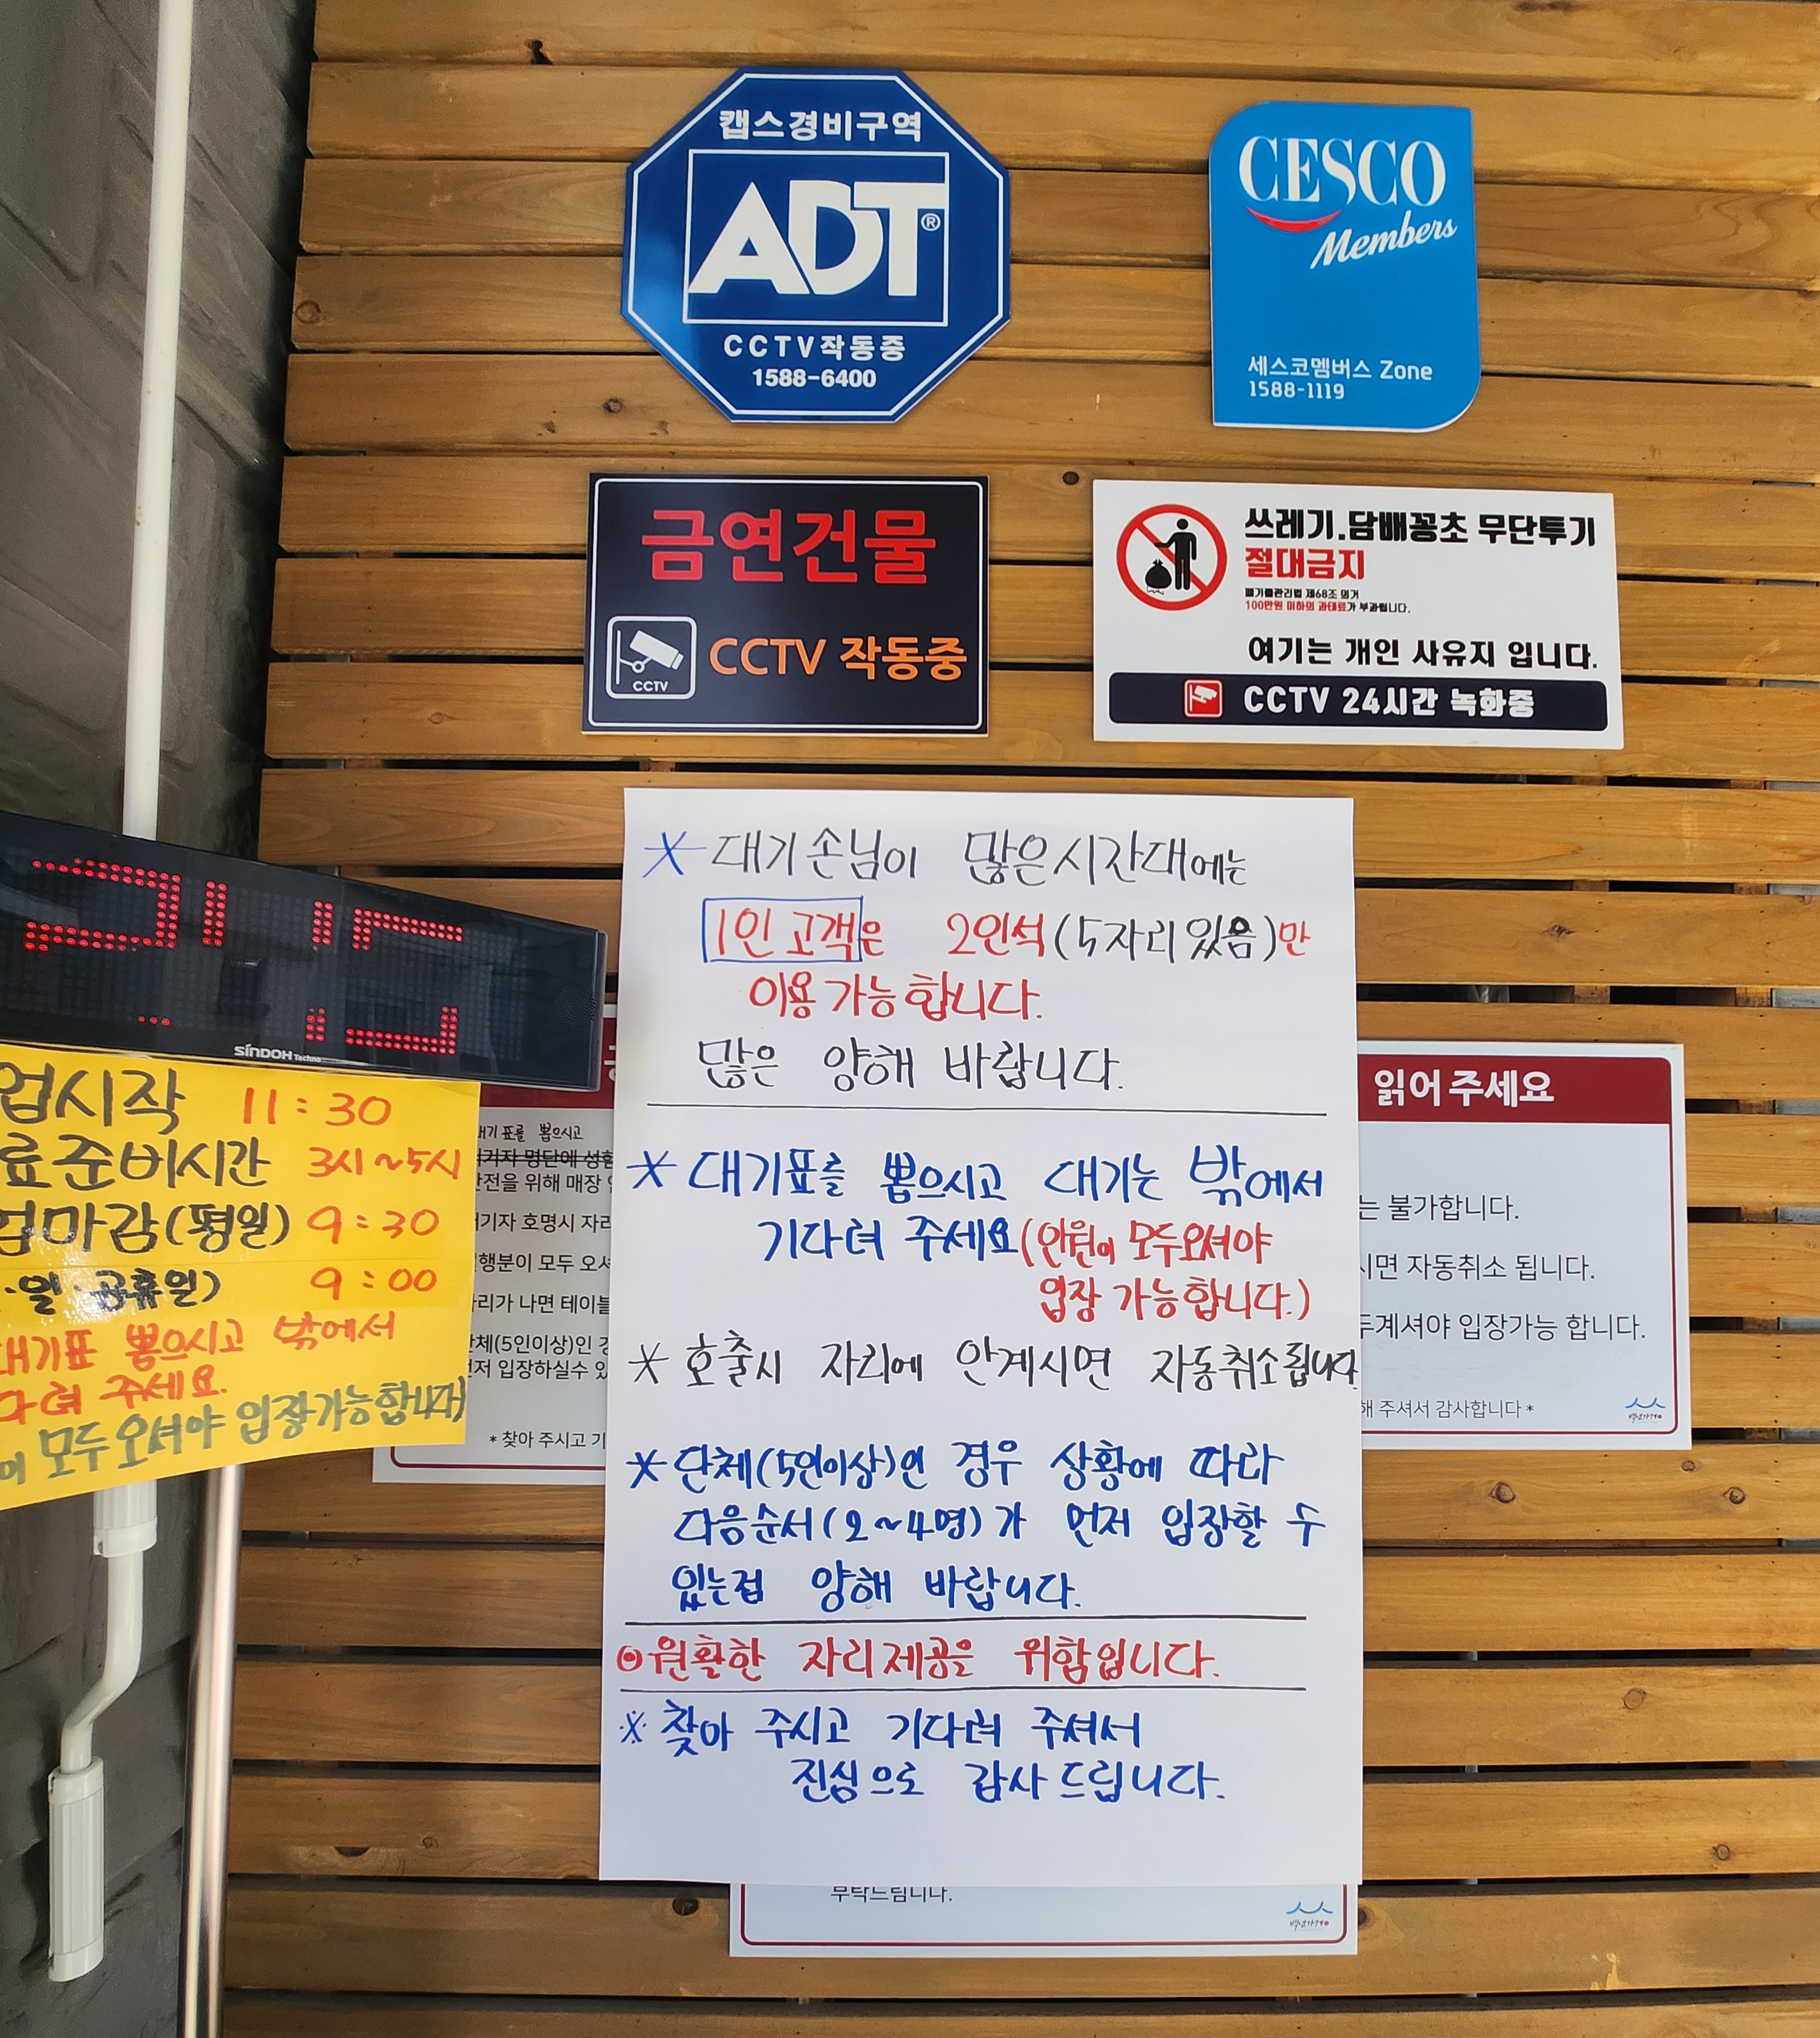 캡스경비구역
ADT®
CCTV작동중
1588-6400
CESCO
Members
세스코멤버스 Zone
1588-1119
금연건물
CCTV
CCTV 작동중
쓰레기.담배꽁초 무단투기
절대금지
폐기물관리법 제68조 의거
100만원 이하의 과태료가 부과됩니다.
여기는 개인 사유지 입니다.
CCTV 24시간 녹화중
SINDOH Techno
업시작 11:30
료준비시간 3시~5시
업마감(평일) 9:30
·일·공휴일) 9:00
대기표 뽑으시고 밖에서
다려 주세요.
이 모두오셔야 입장가능합니다)
대기표를 뽑으시고
기자 명단에 성함
안전을 위해 매장
기자 호명시 자리
행분이 모두 오셔
리가 나면 테이블
단체(5인이상)인 경
먼저 입장하실수 있
* 찾아 주시고 기
※ 대기손님이 많은시간대에는
1인 고객은 2인석(5자리있음)만
이용가능합니다.
많은 양해 바랍니다.
※ 대기표를 뽑으시고 대기는 밖에서
기다려 주세요(인원이 모두오셔야
입장 가능합니다.)
※ 호출시 자리에 안계시면 자동취소됩니다.
※ 단체(5인이상)인 경우 상황에 따라
다음순서(2~4명)가 먼저 입장할 수
있는점 양해 바랍니다.
◎원활한 자리제공을 위함입니다.
※ 찾아 주시고 기다려 주셔서
진심으로 감사드립니다.
읽어 주세요
는 불가합니다.
시면 자동취소 됩니다.
두계셔야 입장가능 합니다.
해 주셔서 감사합니다 *
백년가게
부탁드립니다.
백년가게